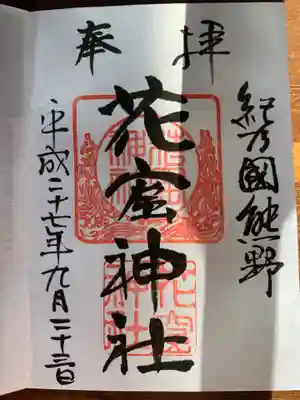 奉拝
紀乃國熊野
花窟神社
平成二十七年九月二十三日